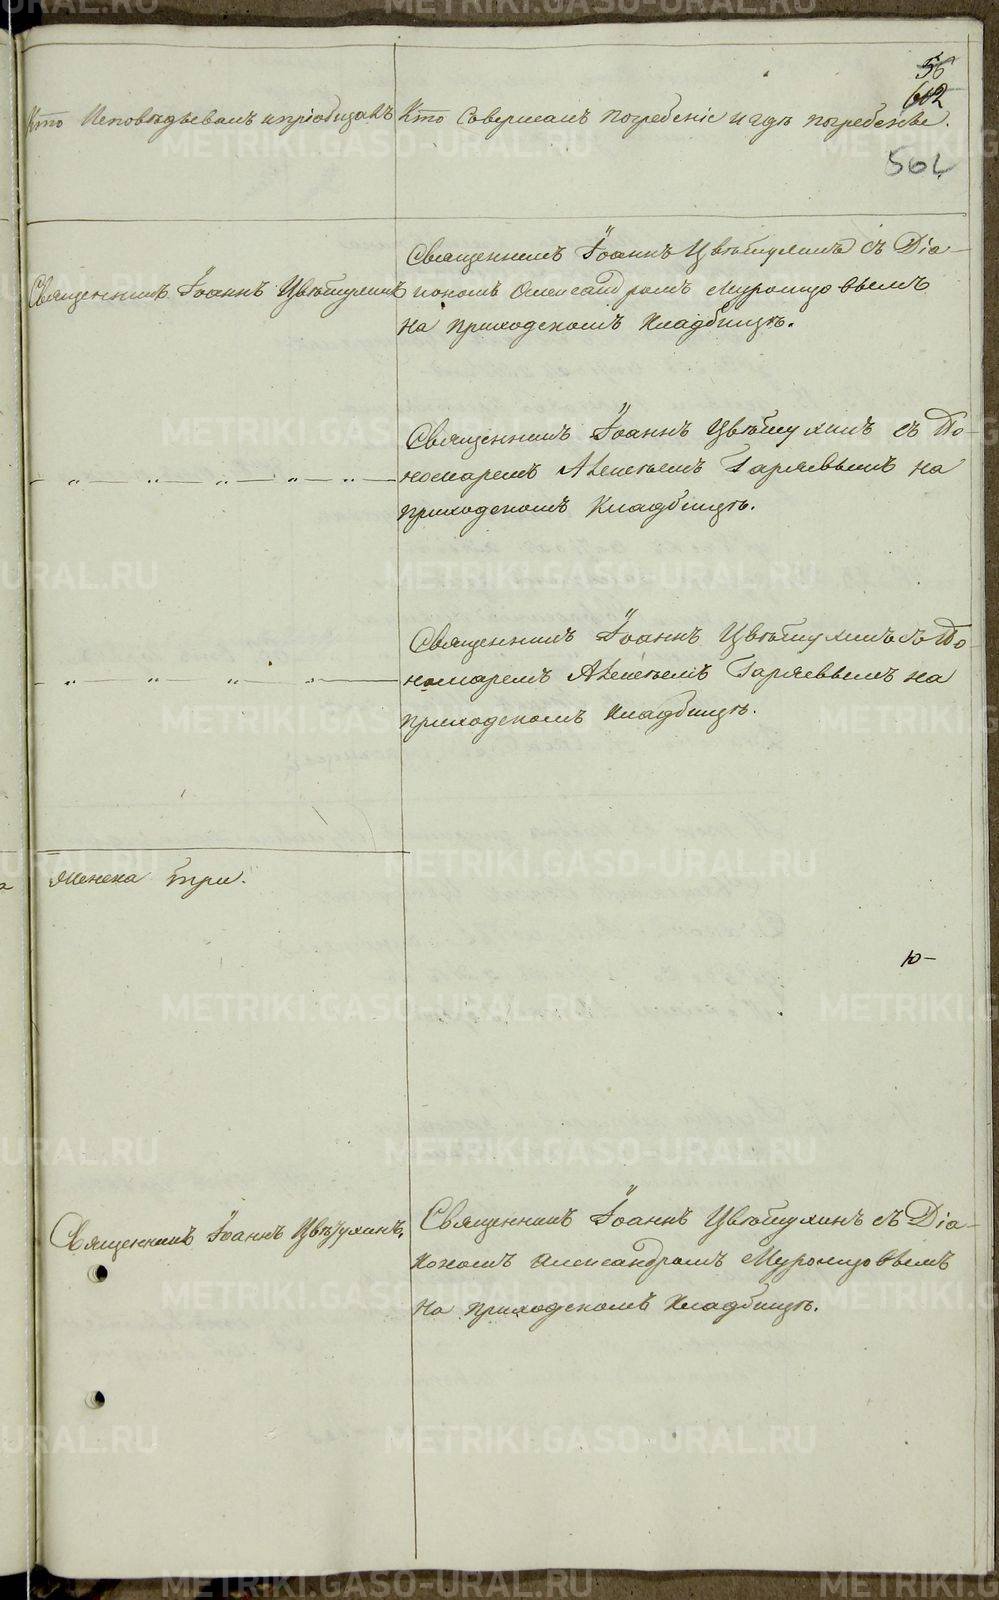 56
602
Кто Исповѣдывалъ и пріобщалъ
Кто Совершалъ погребеніе и гдѣ погребены.
Священникъ Іоаннъ Цвѣтухинъ
Священникъ Іоаннъ Цвѣтухинъ съ Діа-
кономъ Александромъ Муромцовымъ
на приходскомъ Кладбищѣ.
— „ — „ — „ — „ — „ —
Священникъ Іоаннъ Цвѣтухинъ съ По-
номаремъ Гаряевымъ на
приходскомъ Кладбищѣ.
— „ — „ — „ — „ —
Священникъ Іоаннъ Цвѣтухинъ съ По-
номаремъ Гаряевымъ на
приходскомъ Кладбищѣ.
женска три.
ю-
Священникъ Іоаннъ Цвѣтухинъ.
Священникъ Іоаннъ Цвѣтухинъ съ Діа-
кономъ Александромъ Муромцовымъ
на приходскомъ Кладбищѣ.
METRIKI.GASO-URAL.RU